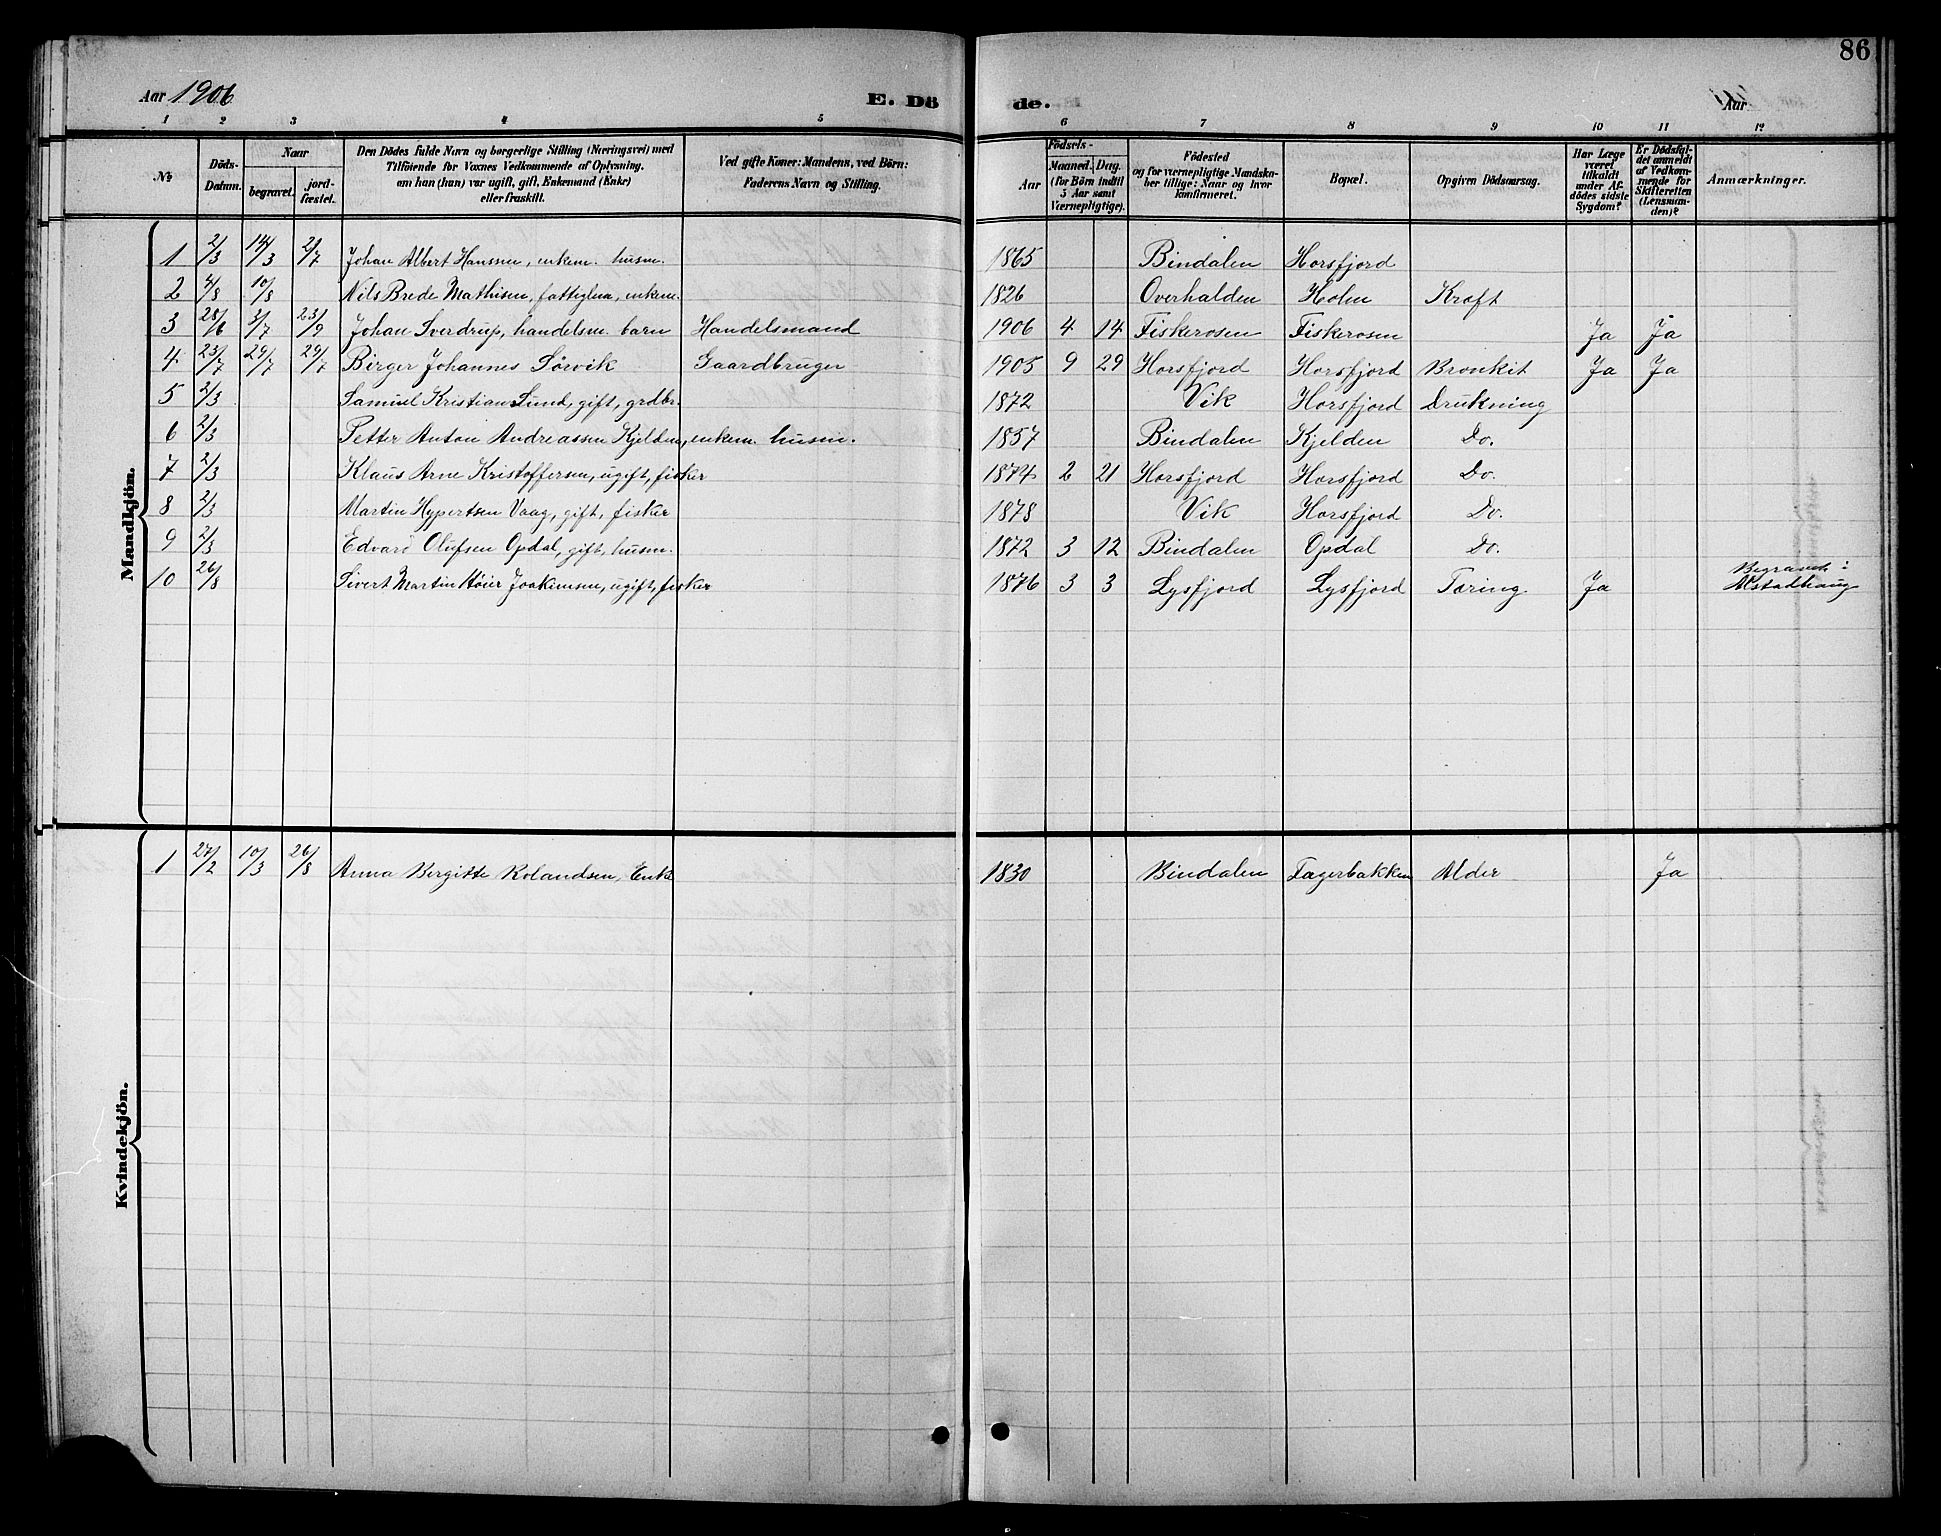 86
Aar 1906
E. Dö
de.
Aar
1 2 3 4 5 6 7 8 9 10 11 12
№
Döds-Datum.
Naar
begravet.
jord-fæstet.
Den Dödes fulde Navn og borgerlige Stilling (Næringsvei) med
Tilföiende for Voxnes Vedkommende af Oplysning.
om han (hun) var ugift, gift, Enkemand (Enke)
eller fraskilt.
Ved gifte Koner: Mandens, ved Börn:
Faderens Navn og Stilling.
Födsels-
Aar
Maaned. Dag.
(for Börn indtil
5 Aar samt
Værnepligtige).
Födested
og for værnepligtige Mandska-
ber tillige: Naar og hvor
konfirmeret.
Bopæl.
Opgiven Dödsaarsag.
Har Læge
været
tilkaldt
under Af-
dödes sidste
Sygdom?
Er Dödsfal-
det anmeldt
af Vedkom-
mende for
Skifteretten
(Lensman-
den)?
Anmærkninger.
Mandkjön.
1 2/3 14/3 2/7 Johan Albert Hanssen, enkem. husm. 1865 Bindalen Horsfjord
2 4/8 10/8 Nils Brede Mathisen, fattiglem, enkem. 1826 Overhalden Holm Kræft
3 28/6 3/7 23/9 Johan Sverdrup, handelsm. barn Handelsmand 1906 4 14 Fiskerosen Fiskerosen Ja Ja
4 23/7 29/7 29/7 Birger Johannes Sörvik Gaardbruger 1905 9 29 Horsfjord Horsfjord Bronkit Ja Ja
5 2/3 Samuel Kristian Lund, gift, grdbr. 1872 Vik Horsfjord Drukning
6 2/3 Petter Anton Andreassen Kjelden, enkem. husm. 1857 Bindalen Kjelden Do.
7 2/3 Klaus Arne Kristoffersen, ugift, fisker 1874 2 21 Horsfjord Horsfjord Do.
8 2/3 Martin Hypertsen Vaag, gift, fisker 1878 Vik Horsfjord Do.
9 2/3 Edvard Olufsen Opdal, gift, husm. 1872 3 12 Bindalen Opdal Do.
10 26/8 Sivert Martin Höier Joakimsen, ugift, fisker 1876 3 3 Lysfjord Lysfjord Tæring. Ja Begravet i
Alstadhaug
Kvindekjön.
1 27/2 10/3 26/8 Anna Bergitte Rolandsen, Enke 1830 Bindalen Fagerbakken Alder Ja